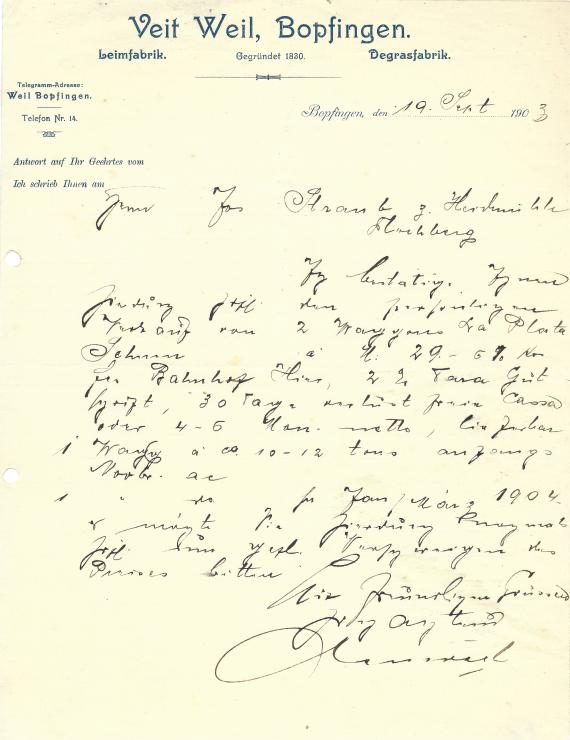 Veit Weil, Bopfingen.
Leimfabrik. Gegründet 1830. Degrasfabrik.
Telegramm-Adresse:
Weil Bopfingen.
Telefon Nr. 14.
Bopfingen, den 19. Sept 1903
Antwort auf Ihr Geehrtes vom
Ich schrieb Ihnen am
Herrn Jos Straub z. Heidmühle
Flochberg
Ich bestätige Ihnen
hierdurch den
Verkauf von 2 Waggons La Plata
à M. 29.-
per Bahnhof Hier, 2 % Tara Gut
schrift, 30 Tage Cassa
oder 4-6 Mon. netto, lieferbar
1 Wagg à ca 10-12 tons anfangs
Novbr. ac
1 " do per Jan/März 1904.
Sie hierdurch
des
Preises bitten
Mit freundlichen Grüssen